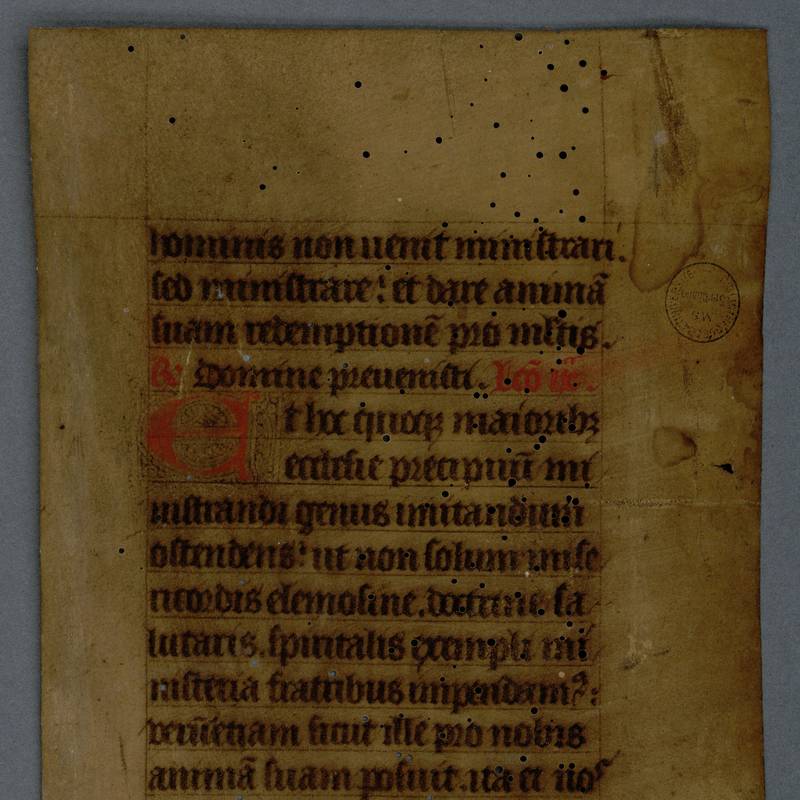 hominis non uenit ministrari.
sed ministrare: et dare animā
suam redemptionē pro mltis.
℟ Domine preuenisti. Lcō
Et hoc quoqȝ maioribȝ
ecclesie precipuū mi
nistrandi genus imitandum
ostendens: ut non solum mise
ricordis elemosine. doctrine sa
lutaris. spiritalis exempli mi
nisteria fratribus impendam?:
verūetiam sicut ille pro nobis
animā suam posuit. ita et nos